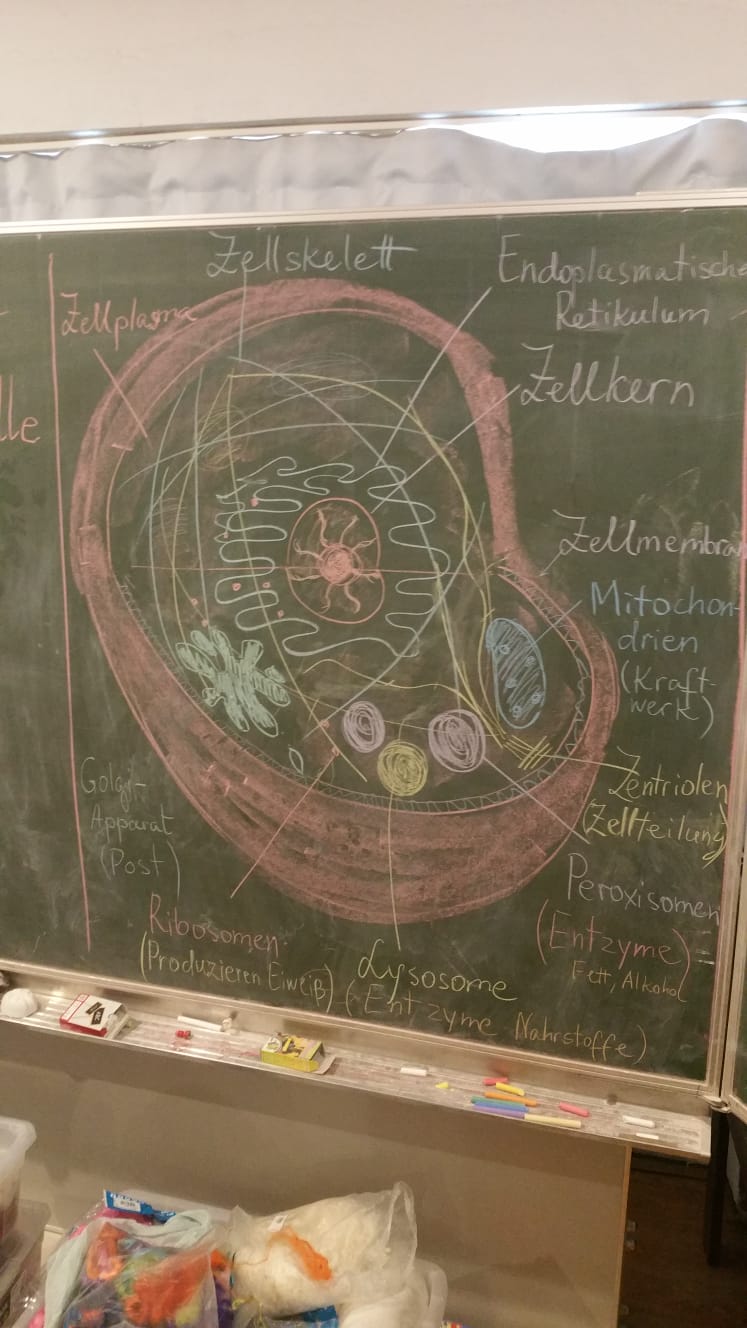 Zellskelett
Endoplasmatische
Retikulum
Zellplasma
Zellkern
lle
Zellmembra
Mitochon-
drien
(Kraft-
werk)
Golgi-
Apparat
(Post)
Zentriolen
(Zellteilung)
Peroxisomen
(Entzyme)
Fett, Alkohol
Ribosomen
(Produzieren Eiweiß)
Lysosome
(Entzyme Nahrstoffe)